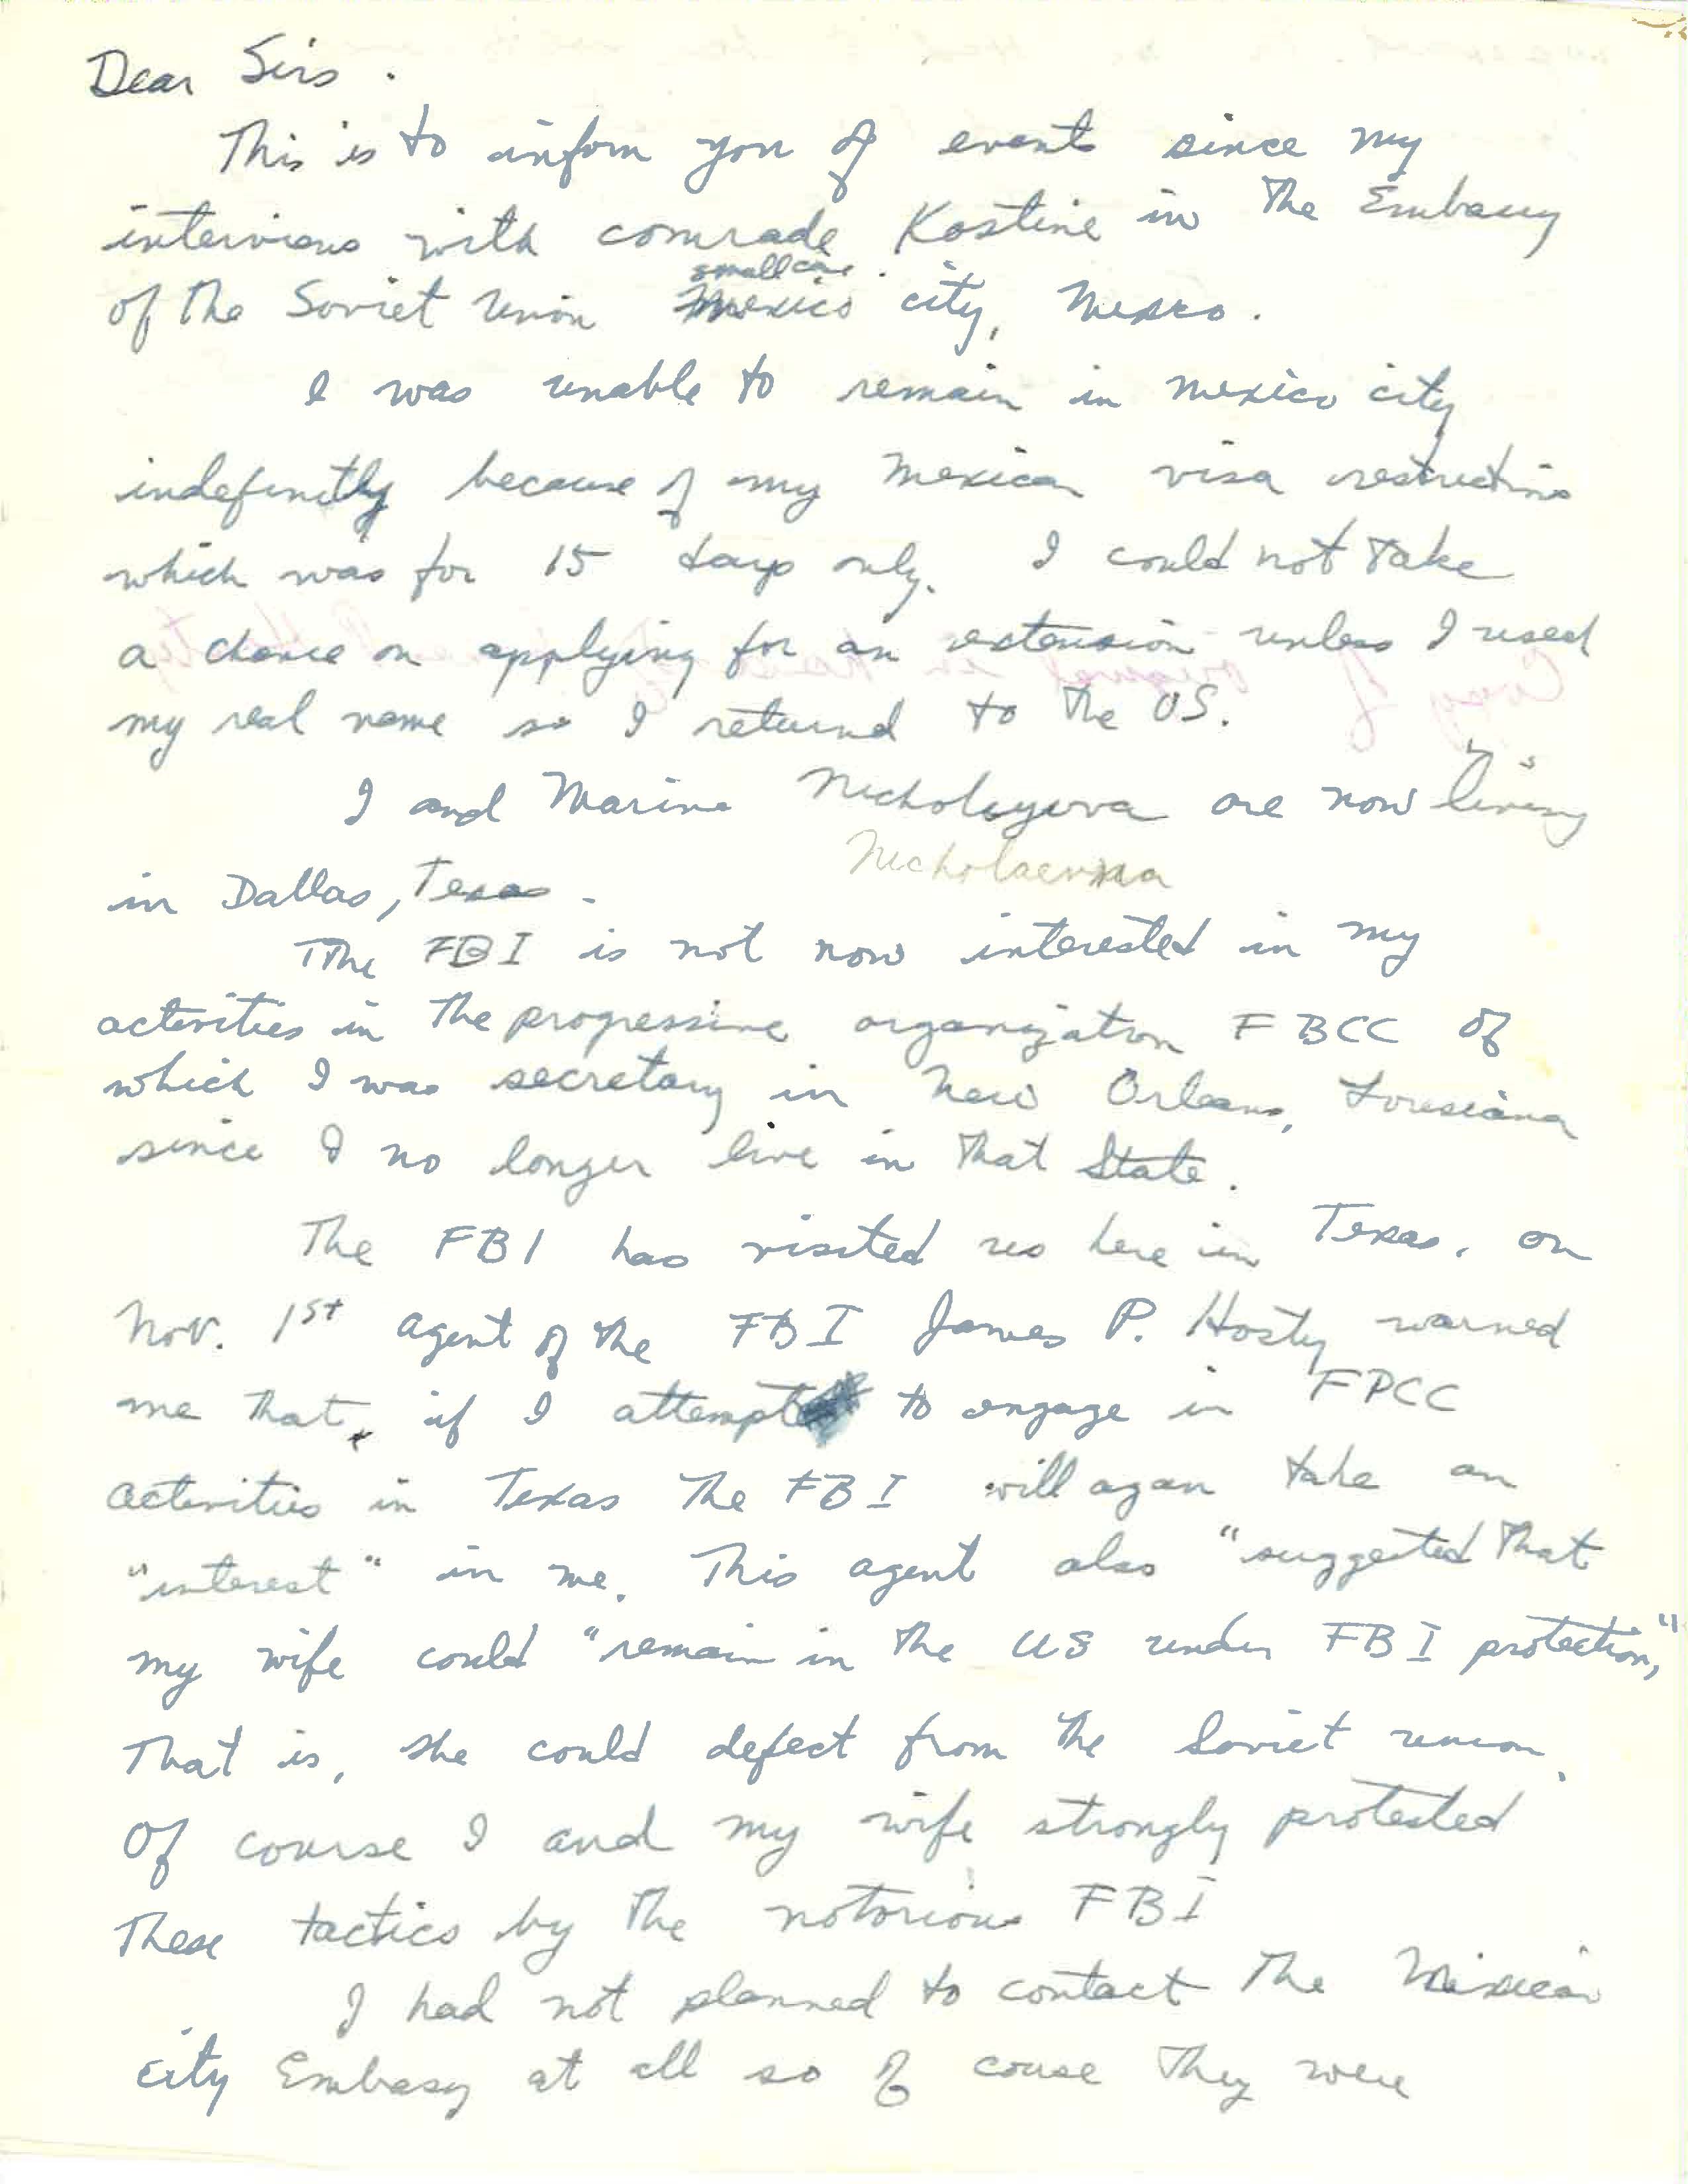 Dear Sirs.
This is to inform you of events since my
interviews with comrade Kostine in the Embassy
small case.
of the Soviet Union Mexico city, Mexico.
I was unable to remain in mexico city
indefinitly because of my mexican visa restrictions
which was for 15 days only. I could not take
a chance on applying for an extension unless I used
my real name so I returned to the US.
I and Marina Nicholeyeva are now living
Nicholaevna
in Dallas, Texas.
The FBI is not now interested in my
activities in the progressive organization FBCC of
which I was secretary in New Orleans, Louisiana
since I no longer live in that State.
The FBI has visited us here in Texas. on
Nov. 1st agent of the FBI James P. Hosty warned
me that, if I attempt to engage in FPCC
activities in Texas the FBI will agan take an
"interest" in me. This agent also "suggested that
my wife could "remain in the US under FBI protection,"
That is, she could defect from the Soviet union.
Of course I and my wife strongly protested
these tactics by the notorious FBI
I had not planned to contact the Mexican
city Embasy at all so of couse they were